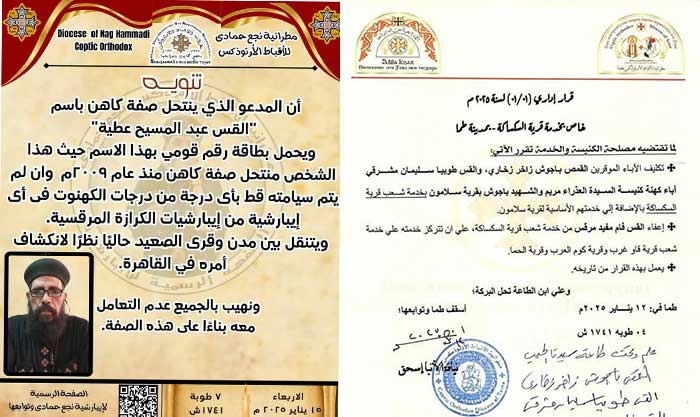 Diocese of Nag Hammadi
Coptic Orthodox
مطرانية نجع حمادى
للأقباط الأرثوذكس
تنويه
أن المدعو الذي ينتحل صفة كاهن باسم
"القس عبد المسيح عطية"
ويحمل بطاقة رقم قومي بهذا الاسم حيث هذا
الشخص منتحل صفة كاهن منذ عام ٢٠٠٩م وان لم
يتم سيامته قط بأى درجة من درجات الكهنوت فى أى
إيبارشية من إيبارشيات الكرازة المرقسية.
ويتنقل بين مدن وقرى الصعيد حاليًا نظرًا لانكشاف
أمره في القاهرة.
ونهيب بالجميع عدم التعامل
معه بناءًا على هذه الصفة.
الصفحة الرسمية
لإيبارشية نجع حمادى وتوابعها
٧ طوبة
١٧٤١ ش
الاربعاء
١٥ يناير ٢٠٢٥ م
قرار إداري (٠١/٠١) لسنة ٢٠٢٥ م
خاص بخدمة قرية السكساكة -بمدينة طما
لما تقتضيه مصلحة الكنيسة والخدمة تقرر الآتي:
- تكليف الآباء الموقرين القمص باجوش زاخر زخاري، والقس طوبيا سليمان مشرقي
آباء كهنة كنيسة السيدة العذراء مريم والشهيد باجوش بقرية سلامون بخدمة شعب قرية
السكساكة بالإضافة إلي خدمتهم الأساسية لقرية سلامون.
- إعفاء القس فام مفيد مرقس من خدمة شعب قرية السكساكة، علي ان تتركز خدمته علي خدمة
شعب قرية قاو غرب وقرية كوم العرب وقرية الحما.
- يعمل بهذا القرار من تاريخه.
وعلي ابن الطاعة تحل البركة؛
طما في: ١٢ يناير ٢٠٢٥ م
أسقف طما وتوابعها؛
٠٤ طوبه ١٧٤١ ش
نيافة الأنبا إسحق